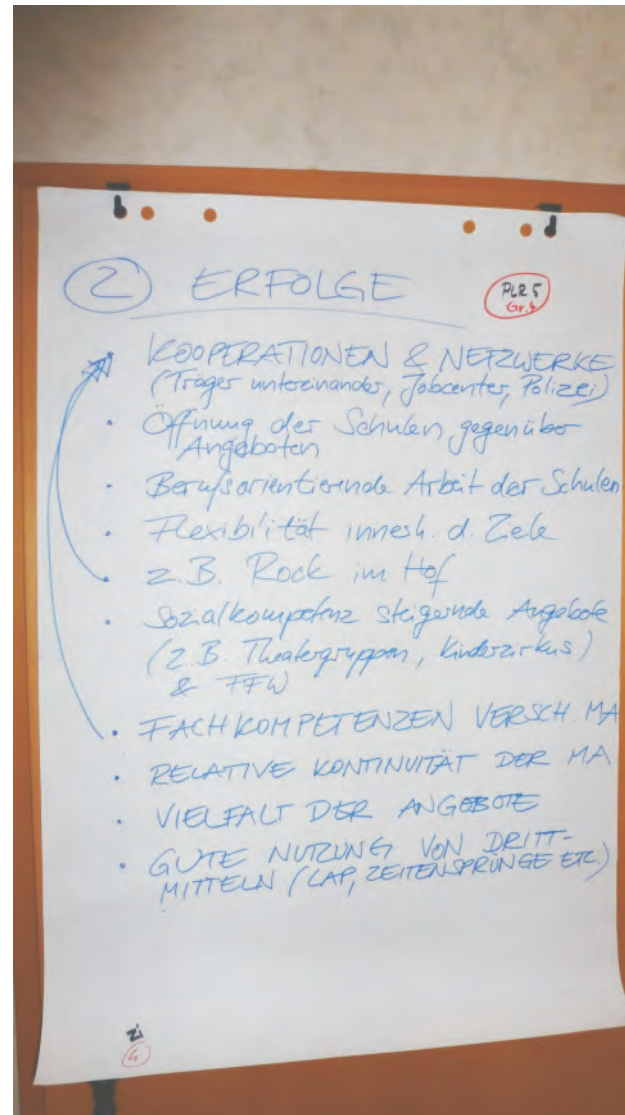 ② ERFOLGE
PLR 5
Gr. 4
KOOPERATIONEN & NETZWERKE
(Träger untereinander, Jobcenter, Polizei)
· Öffnung der Schulen gegenüber
Angeboten
· Berufsorientierende Arbeit der Schulen
· Flexibilität innerh. d. Ziele
· z.B. Rock im Hof
· Sozialkompetenz steigernde Angebote
(z.B. Theatergruppen, Kinderzirkus)
& FFW
· FACHKOMPETENZEN VERSCH. MA
· RELATIVE KONTINUITÄT DER MA
· VIELFALT DER ANGEBOTE
· GUTE NUTZUNG VON DRITT-
MITTELN (LAP, ZEITENSPRÜNGE ETC.)
Zi
4